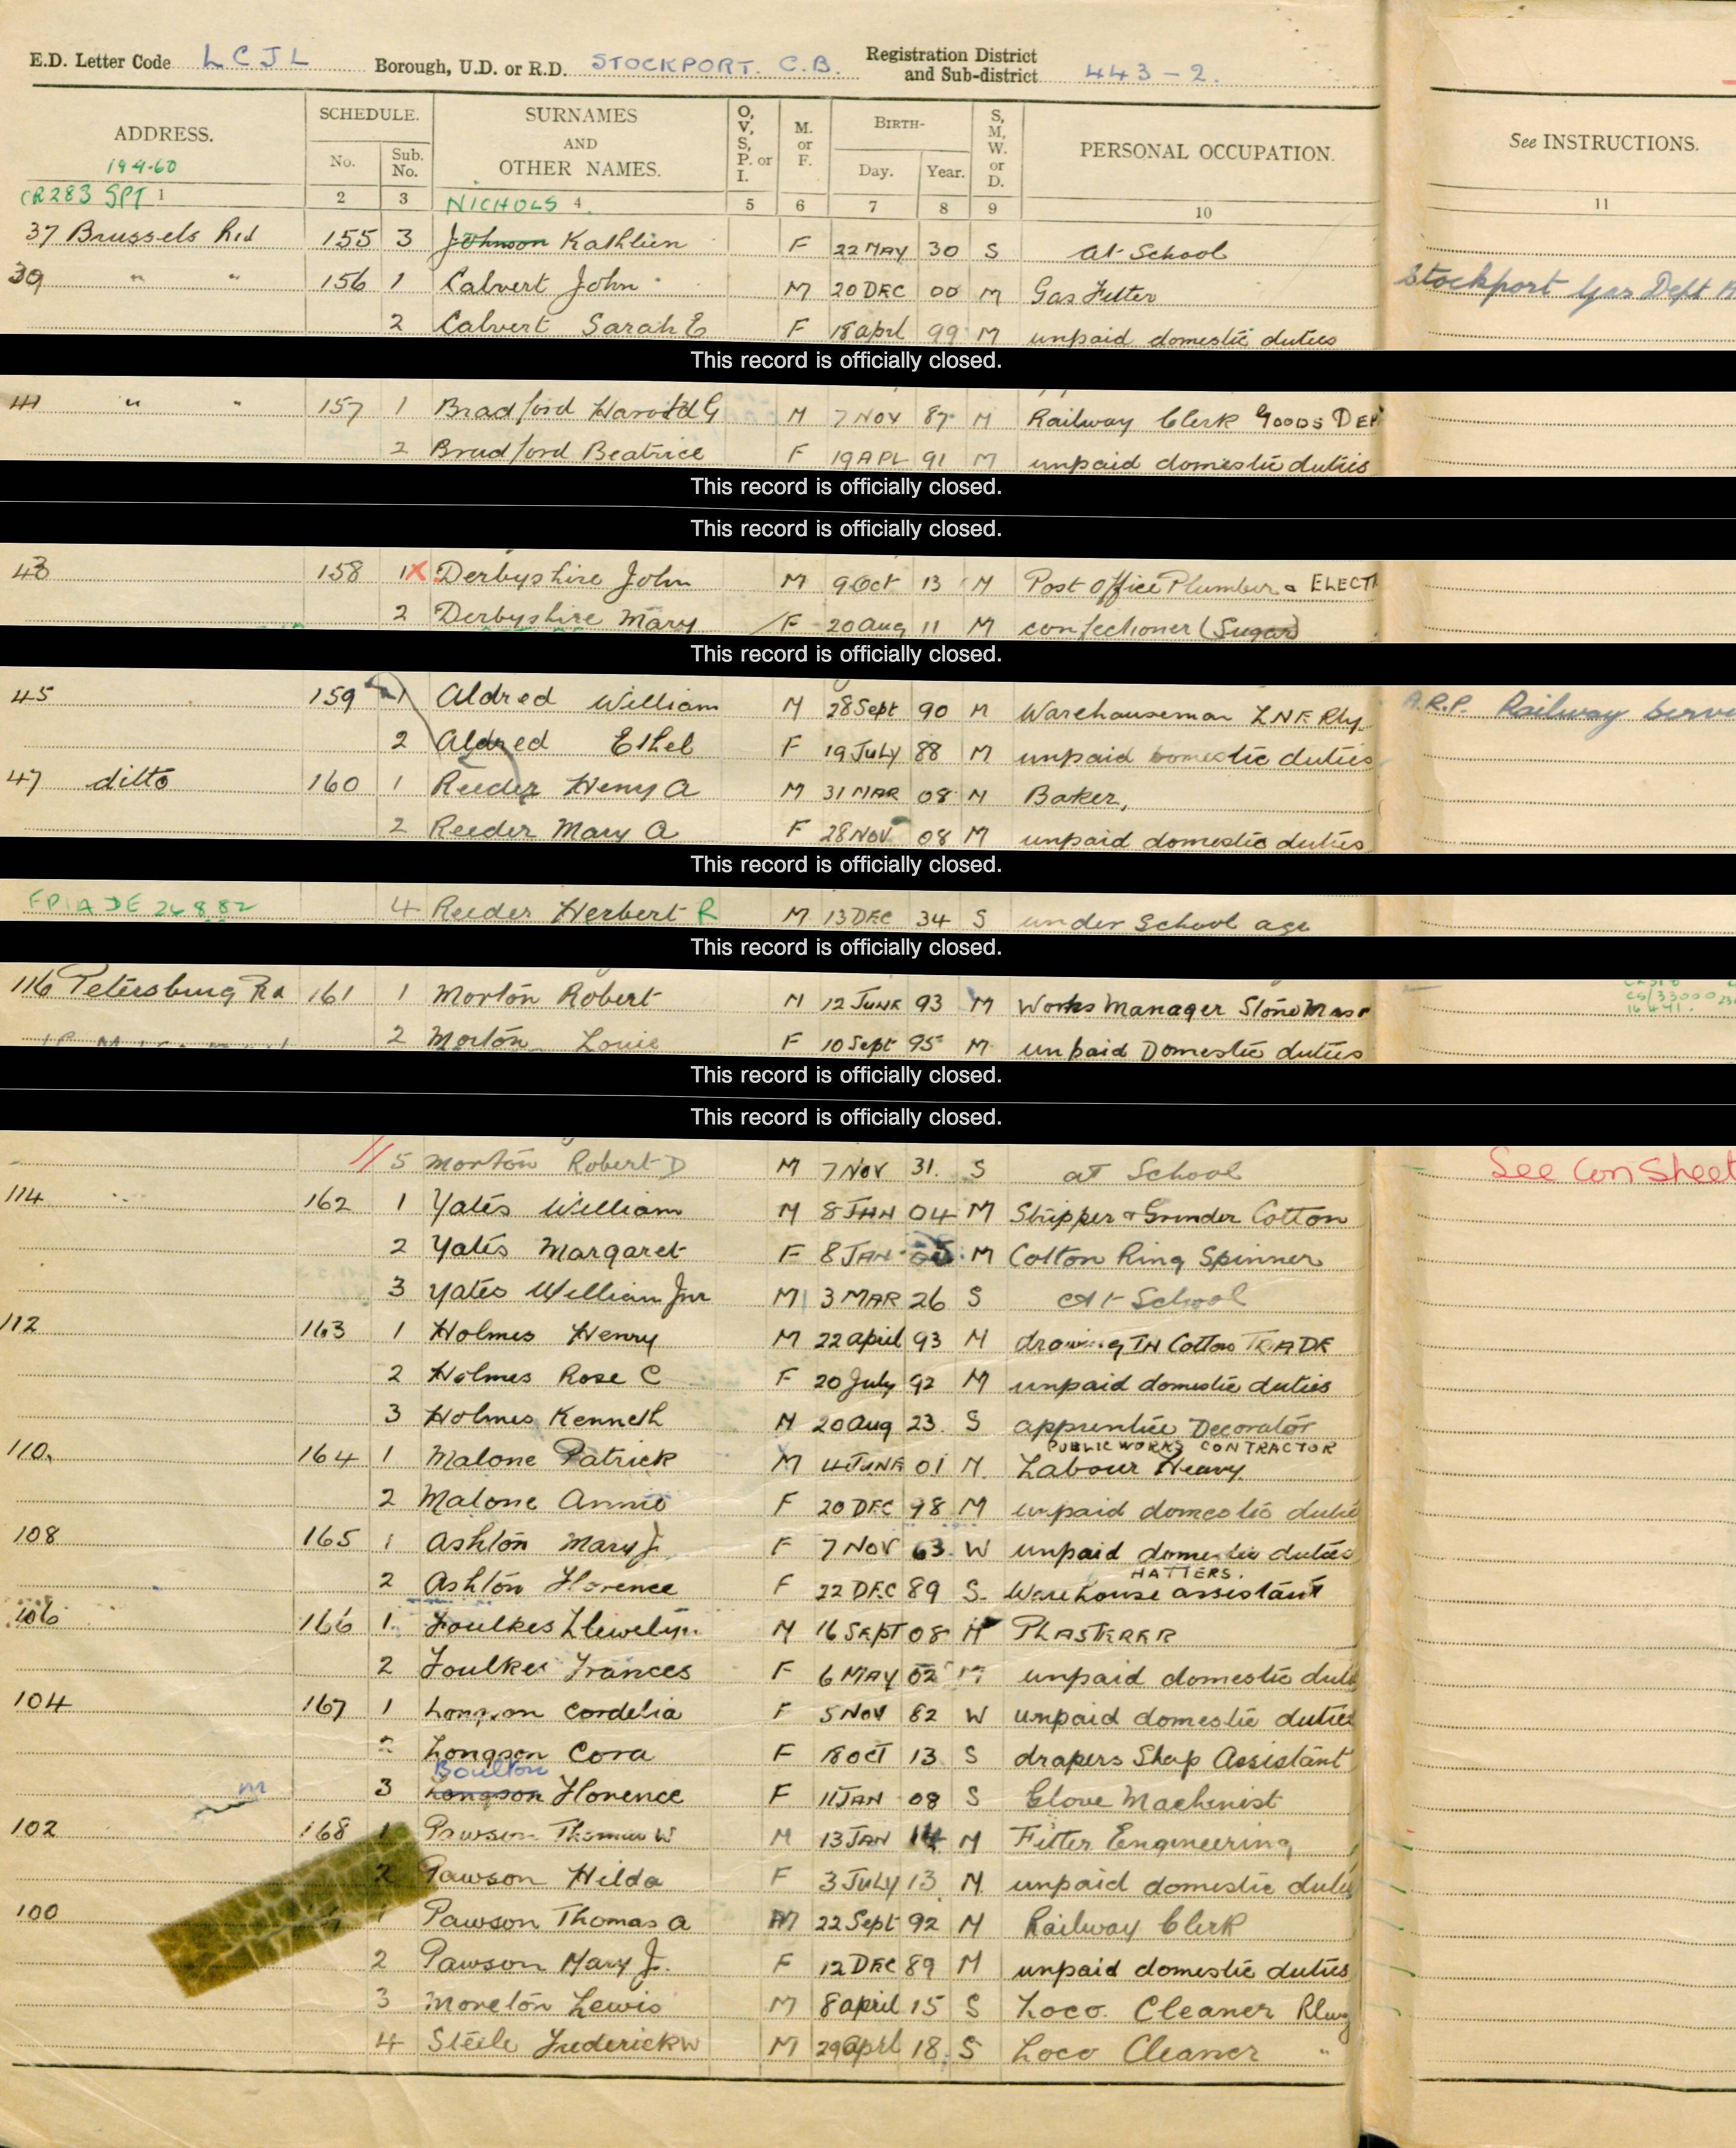 E.D. Letter Code LCJL Borough, U.D. or R.D. STOCKPORT. C.B. Registration District and Sub-district 443-2.
ADDRESS. SCHEDULE. No. Sub. No. SURNAMES AND OTHER NAMES. O, V, S, P. or I. M. or F. BIRTH- Day. Year. S, M, W. or D. PERSONAL OCCUPATION. See INSTRUCTIONS.
194-60
CR283 SPT 1 2 3 NICHOLS 4 5 6 7 8 9 10 11
37 Brussels Rd 155 3 Johnson Kathleen F 22 MAY 30 S at School
39 " " 156 1 Calvert John M 20 DEC 00 M Gas Fitter Stockport Gas Dept
2 Calvert Sarah E F 18 april 99 M unpaid domestic duties
This record is officially closed.
41 " " 157 1 Bradford Harold G M 7 NOV 87 M Railway Clerk GOODS DEP
2 Bradford Beatrice F 19 APL 91 M unpaid domestic duties
This record is officially closed.
This record is officially closed.
43 158 1 X Derbyshire John M 9 Oct 13 M Post Office Plumber & ELECT
2 Derbyshire Mary F 20 Aug 11 M confectioner (Sugar)
This record is officially closed.
45 159 1 Aldred William M 28 Sept 90 M Warehouseman LNE Rly. A.R.P. Railway Serv
2 Aldred Ethel F 19 July 88 M unpaid domestic duties
47 ditto 160 1 Reeder Henry A M 31 MAR 08 M Baker,
2 Reeder Mary A F 28 NOV 08 M unpaid domestic duties
This record is officially closed.
4 Reeder Herbert R M 13 DEC 34 S under School age
This record is officially closed.
116 Petersburg Rd 161 1 Morton Robert M 12 JUNE 93 M Works Manager Stone Mas
2 Morton Louie F 10 Sept 95 M unpaid Domestic duties
This record is officially closed.
This record is officially closed.
5 Morton Robert D M 7 NOV 31. S at School See Con Sheet
114 162 1 Yates William M 8 JAN 04 M Stripper & Grinder Cotton
2 Yates Margaret F 8 JAN M Cotton Ring Spinner
3 Yates William Jnr M 3 MAR 26 S At School
112 163 1 Holmes Henry M 22 april 93 M drawing IN Cotton TRADE
2 Holmes Rose C F 20 July 92 M unpaid domestic duties
3 Holmes Kenneth M 20 Aug 23. S apprentice Decorator
PUBLIC WORKS CONTRACTOR
110. 164 1 Malone Patrick M 4 JUNE 01 M. Labour Heavy
2 Malone Annie F 20 DEC 98 M unpaid domestic duties
108 165 1 Ashton Mary J. F 7 NOV 63. W unpaid domestic duties
HATTERS.
2 Ashton Florence F 22 DEC 89 S. Warehouse assistant
106 166 1. Foulkes Llewelyn M 16 SEPT 08 M PLASTERER
2 Foulkes Frances F 6 MAY 02 M unpaid domestic duti
104 167 1 Longson Cordelia F 5 NOV 82 W unpaid domestic duties
2 Longson Cora F 18 OCT 13 S drapers Shop Assistant
Boulton
m 3 Longson Florence F 11 JAN 08 S Glove Machinist
102 168 1 Pawson Thomas W M 13 JAN 14 M Fitter Engineering
2 Pawson Hilda F 3 JULY 13 M. unpaid domestic duties
100 1 Pawson Thomas A M 22 Sept 92 M Railway Clerk
2 Pawson Mary J. F 12 DEC 89 M unpaid domestic duties
3 Moreton Lewis M 8 april 15 S Loco. Cleaner Rlwy
4 Steele Frederick W M 29 april 18. S Loco Cleaner "